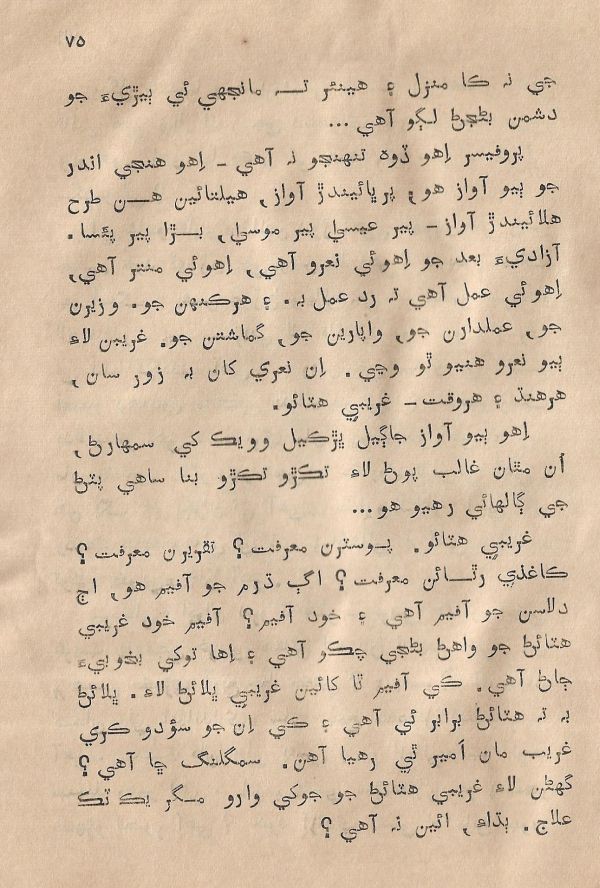 ٧٥
جي نہ ڪا منزل ۽ هينئر تہ مانجهي ئي ٻيڙيءَ جو
دشمن بڻجڻ لڳو آهي...
پروفيسر اِهو ڏوهہ تنهنجو نہ آهي – اِهو هنجي اندر
جو ٻيو آواز هو, پرڀائيندڙ آواز, هيلتائين هن طرح
هلائيندڙ آواز – پير عيسيٰ پير موسيٰ, بڙا پير پئسا.
آزاديءَ بعد جو اِهوئي نعرو آهي, اِهوئي منتر آهي,
اِهوئي عمل آهي تہ رد عمل بہ. ۽ هرڪنهن جو. وزيرن
جو, عملدارن جو, واپارين جو, گماشتن جو. غريبن لاءِ
ٻيو نعرو هنيو ٿو وڃي. اِن نعري کان بہ زور سان,
هرهنڌ ۽ هروقت – غريبي هٽائو.
اِهو ٻيو آواز جاڳيل ڀڙڪيل وويڪ کي سمهارڻ,
اُن مٿان غالب پوڻ لاءِ تڪڙو تڪڙو بنا ساهي پٽڻ
جي ڳالهائي رهيو هو...
غريبي هٽائو. پوسٽرن معرفت؟ تقريرن معرفت؟
ڪاغذي رٿائن معرفت؟ اڳ ڌرم جو آفيم هو, اڄ
دلاسن جو آفيم آهي ۽ خود آفيم؟ آفيم خود غريبي
هٽائڻ جو واهڻ بڻجي چڪو آهي ۽ اِها توکي بخوبيءَ
ڄاڻ آهي. ڪي آفيم ٿا کائين غريبي ڀلائڻ لاءِ. ڀلائڻ
بہ تہ هٽائڻ برابر ئي آهي ۽ ڪي اِن جو سؤدو ڪري
غريب مان اَمير ٿي رهيا آهن. سمگلنگ ڇا آهي؟
گهڻن لاءِ غريبي هٽائڻ جو جوکي وارو مگر يڪ ٽڪ
علاج. ٻڌاءِ, ائين نہ آهي؟